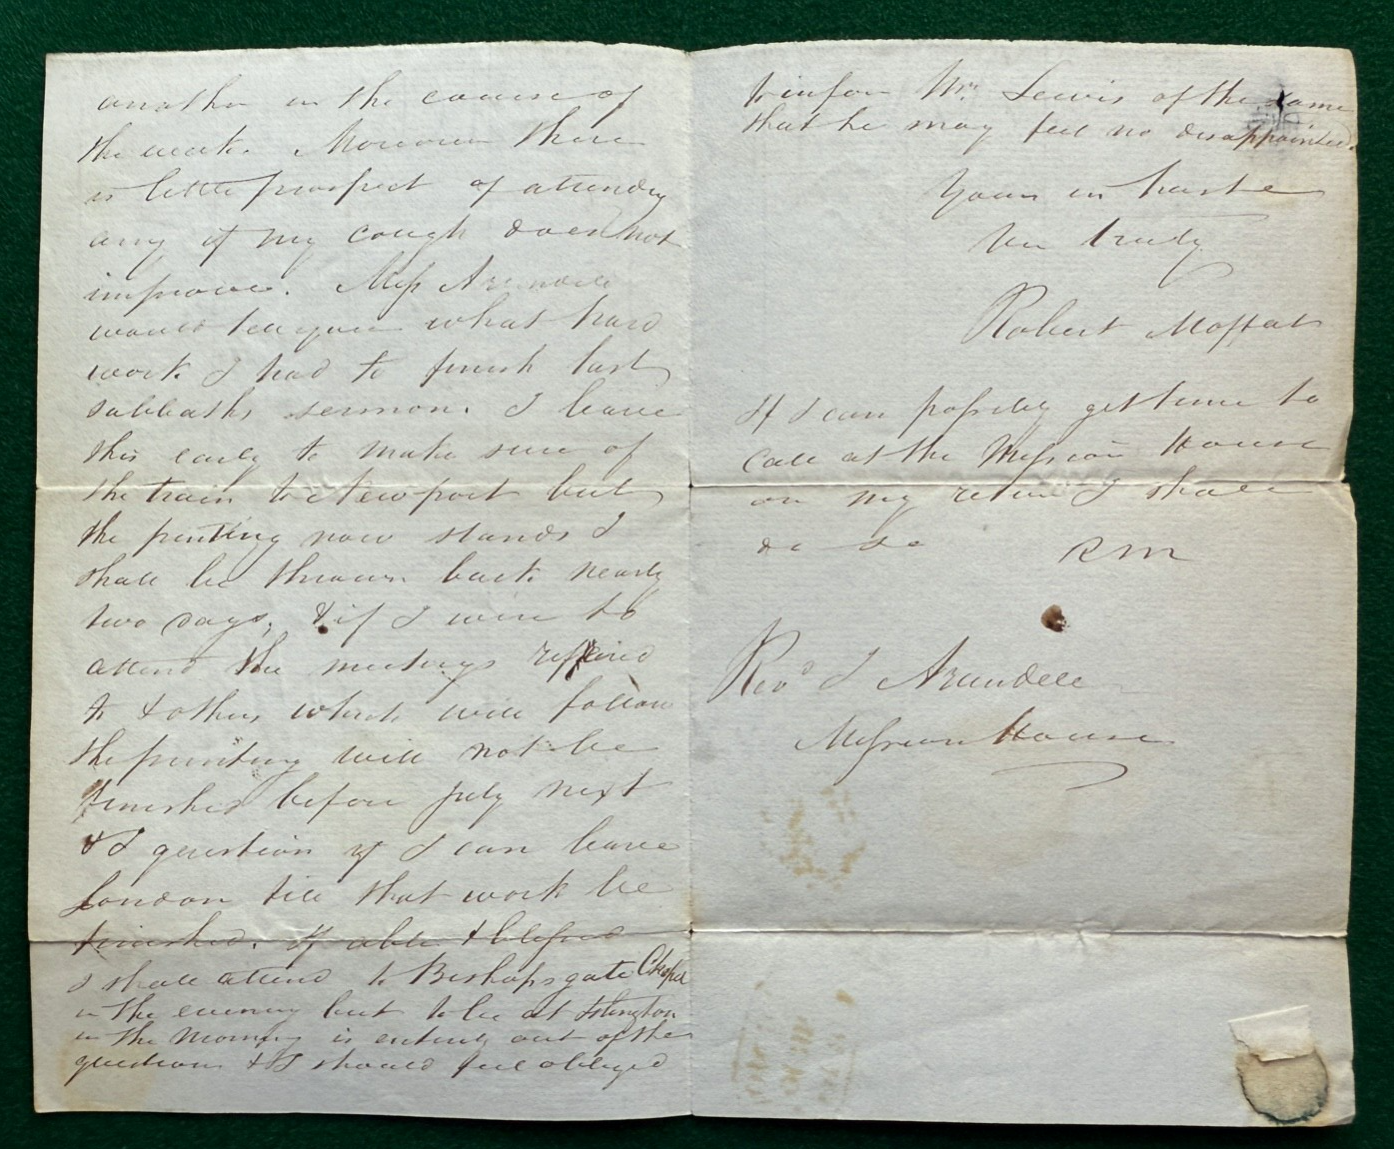 another in the course of
the week. Moreover there
is little prospect of attending
any if my cough does not
improve. Miss Arundell
would tell you what hard
work I had to finish last
sabbaths sermon. I leave
this early to make sure of
the train to Newport but
the printing now stands I
shall be thrown back nearly
two days, & if I were to
attend the meetings referred
to & others which will follow
the printing will not be
finished before July next
& I question if I can leave
London till that work be
finished. If able & blessed
I shall attend to Bishopsgate Chapel
in the evening but to be at Islington
in the morning is entirely out of the
question & I should feel obliged
to inform Mr. Lewis of the same
that he may feel no disappointed.
Yours in haste
Very truly
Robert Moffat
If I can possibly get time to
call at the Mission House
on my return I shall
do so RM
Revd J Arundell
Mission House